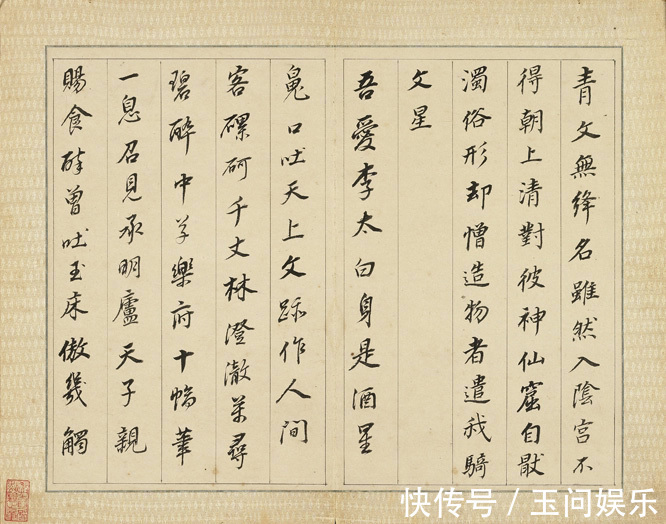 青文無絳名雖然入陰宮不
得朝上清對彼神仙窟自猒
濁俗形却憎造物者遣我騎
文星
吾愛李太白身是酒星
魄口吐天上文跡作人間
客磥砢千丈林澄澈萬尋
碧醉中草樂府十幅筆
一息召見承明廬天子親
賜食醉曾吐玉床傲幾觸
快传号/玉问娱乐